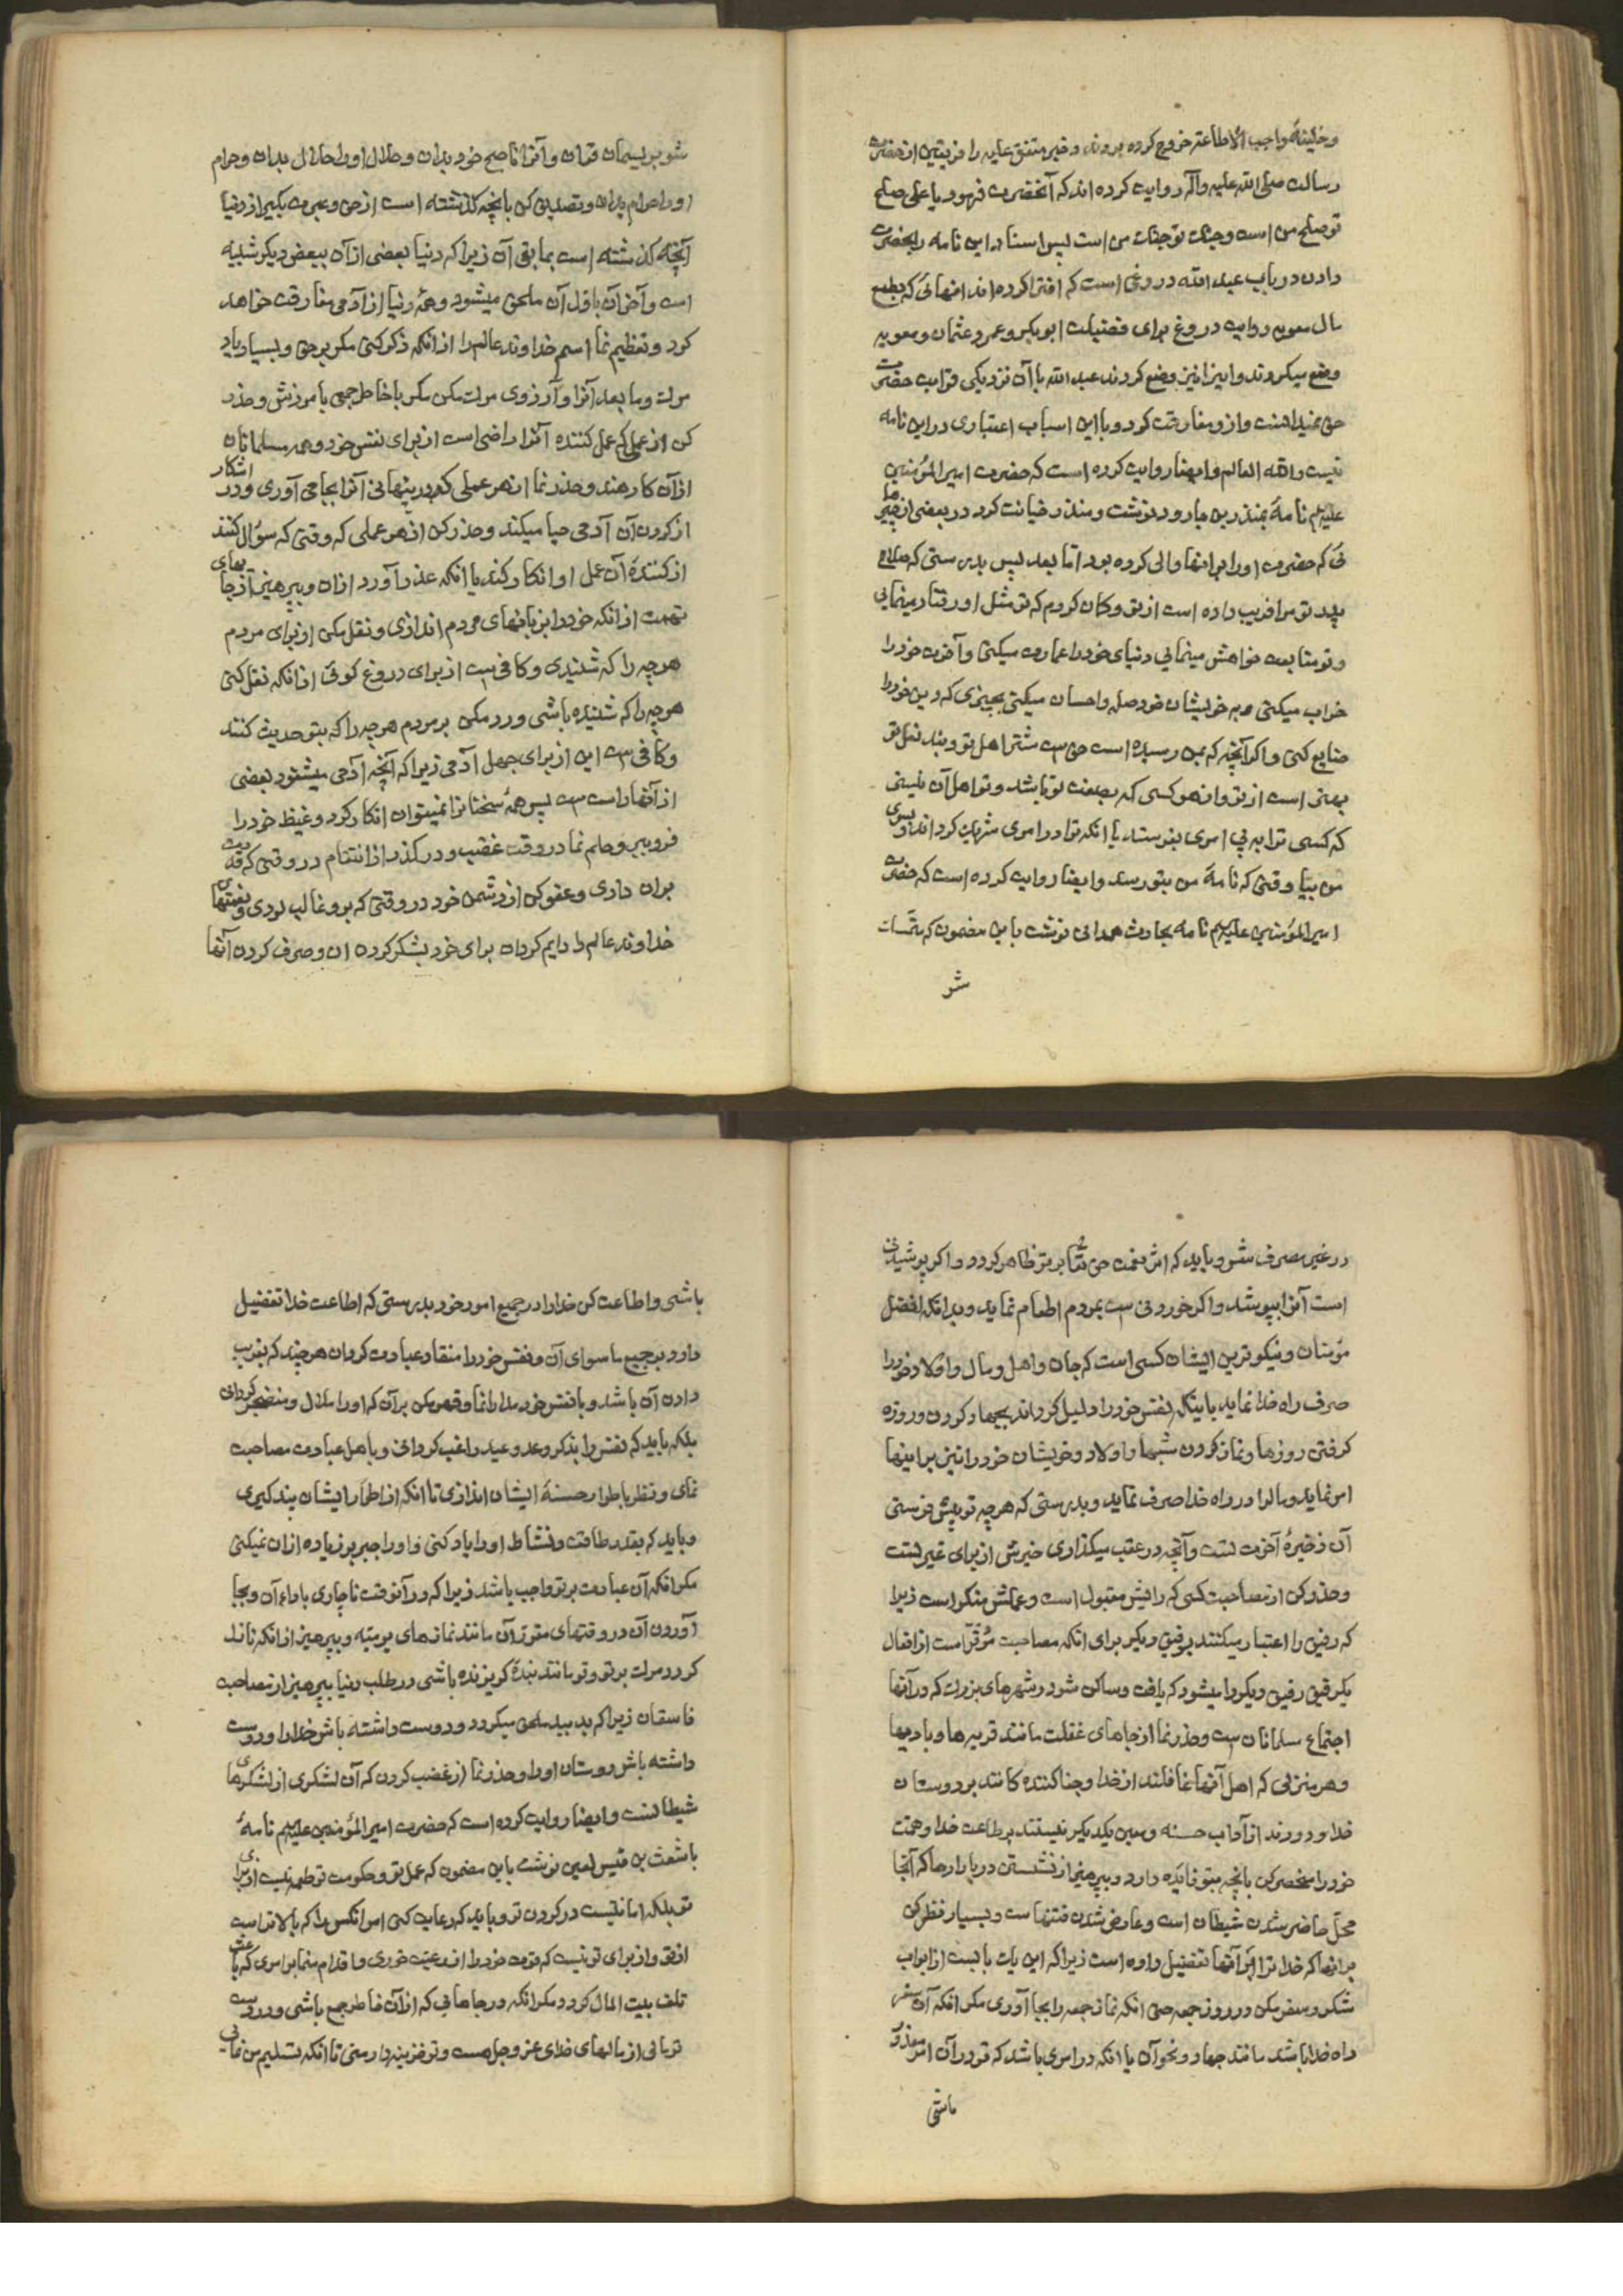 و خلیفهٔ واجب الاطاعته خروج کرده بروند و خبر متفق علیه را فریقین از حضرت
رسالت صلی الله علیه وآله روایت کرده اند که آنحضرت فرمود یا علی صلح
تو صلح من است و جنک تو جنک من است پس اسناد این نامه را بحضرت
دادن در باب عبد الله دروغی است که افترا کرده اند انهائی که بطمع
مال معویه روایت دروغ برای فضیلت ابوبکر و عمر و عثمان و معویه
وضع میکردند و اینرا نیز وضع کردند عبد الله با آن نزدیکی قرابت حضرت
حق نمیدانست و از و مفارقت کرد و با این اسباب اعتباری در این نامه
نیست والله العالم و ایضا روایت کرده است که حضرت امیر المؤمنین
علیهم نامهٔ بمنذر بن جارود نوشت و منذر خیانت کرد در بعضی از چیزها
ئی که حضرت او را بر انها والی کرده بود اما بعد پس بدرستی که صلاح
پدر تو مرا فریب داده است از تو و کمان کردم که تو مثل او رفتار مینمایی
و تو متابعت خواهش مینمایی دنیای خود را عمارت میکنی و آخرت خود را
خراب میکنی و به خویشان خود صله و احسان میکنی بچیزی که دین خود را
ضایع کنی و اگر آنچه که بمن رسیده است حق ست شتر اهل تو و بند نعل تو
بهتر است از تو و از هر کسی که بصفت تو باشد و تو اهل آن نیستی
که کسی ترا به پی امری بفرستد یا انکه ترا در امری شریک کرداند و بسوی
من بیا وقتی که نامهٔ من بتو رسد و ایضا روایت کرده است که حضرت
امیر المؤمنین علیهم نامه بحارث همدانی نوشت باین مضمون که متمسک
شو
شو بریسمان قران و آنرا ناصح خود بدان و حلال او را حلال بدان و حرام
او را حرام بدان و تصدیق کن بانچه کذشته است از حق و عبرت بکیر از دنیا
آنچه کذشته است بما بقی آن زیرا که دنیا بعضی از آن ببعض دیکر شبیه
است و آخر آن باول آن ملحق میشود و همهٔ دنیا از آدمی مفارقت خواهد
کرد و تعظیم نما اسم خداوند عالم را از انکه ذکر کنی مکر بر حق و بسیار یاد
مرک و ما بعد آنرا و آرزوی مرک مکن مکر با خاطر جمعی بآمرزش و حذر
کن از عملی که عمل کننده آنرا راضی است از برای نفس خود و همه مسلمانان
از آن کارهند و حذر نما از هر عملی که در پنهانی آنرا بجا می آوری و در اشکار
از کردن آن آدمی حیا میکند و حذر کن از هر عملی که وقتی که سؤال کنند
از کنندهٔ آن عمل او انکار کند یا انکه عذر آورد از ان و بپرهیز از جاهای
تهمت از انکه خود را بزبانهای مردم اندازی و نقل مکن از برای مردم
هر چه را که شنیدی و کافی ست از برای دروغ کوئی از انکه نقل کنی
هر چه را که شنیده باشی و رد مکن بر مردم هر چه را که بتو حدیث کنند
و کافی ست این از برای جهل آدمی زیرا که آنچه آدمی میشنود بعضی
از آنها راست ست پس همهٔ سخنانرا نمیتوان انکار کرد و غیظ خود را
فرو ببر و حلم نما در وقت غضب و در کذر از انتقام در وقتی که قدرت
بران داری و عفو کن از دشمن خود در وقتی که بر و غالب بودی و نعمتهای
خداوند عالم را دایم کردان برای خود بشکر کردن ان و صرف کردن آنها
در غیر مصرف مشو و باید که اثر نعمت حق تعا بر تو ظاهر کردد و اکر پوشیدنی
است آنرا بپوشد و اکر خوردنی ست بمردم اطعام نماید و بدانکه افضل
مؤمنان و نیکوترین ایشان کسی است که جان و اهل و مال و اولاد خود را
صرف راه خدا نماید باینکه نفس خود را ذلیل کرداند بجهاد کردن و روزه
کرفتن روزها و نماز کردن شبها و اولاد و خویشان خود را نیز براینها
امر نماید و مالرا در راه خدا صرف نماید و بدرستی که هر چه تو پیش فرستی
آن ذخیرهٔ آخرت تست و آنچه در عقب میکذاری خیرش از برای غیر تست
و حذر کن از مصاحبت کسی که رایش مقبول است و عملش منکر است زیرا
که رفیق را اعتبار میکنند برفیق دیکر برای انکه مصاحبت مؤثر است از افعال
یکرفیق رفیق دیکر را میشود که یافت و ساکن شو در شهرهای بزرک که در آنها
اجتماع مسلمانان ست و حذر نما از جاهای غفلت مانند قریه ها و بادیها
و هر منزلی که اهل آنها غافلند از خدا و جفا کننده کانند بر دوستان
خدا و دورند از آداب حسنه و معین یکدیکر نیستند بر طاعت خدا و همت
خود را منحصر کن بانچه بتو فایده دارد و بپرهیز از نشستن در بازارها که آنجا
محل حاضر شدن شیطان است و عارض شدن فتنهاست و بسیار نظر کن
بر انها که خدا ترا بر آنها تفضیل داده است زیرا که این یک بابیست از ابواب
شکر و سفر مکن در روز جمعه حتی انکه نماز جمعه را بجا آوری مکر انکه آن سفر
راه خدا باشد مانند جهاد و نحو آن یا انکه در امری باشد که تو در آن امر معذور
باشی
باشی و اطاعت کن خدا را در جمیع امور خود بدرستی که اطاعت خدا تفضیل
دارد بر جمیع ما سوای آن و نفس خود را منقاد عبادت کردان هر چند که بفریب
دادن آن باشد و با نفس خود مدارا نما و قهر مکن بر آن که او را ملال و منضجر کردانی
بلکه باید که نفس را بذکر وعد و وعید راغب کردانی و باهل عبادت مصاحبت
نمای و نظر باطوار حسنهٔ ایشان اندازی تا انکه از اطوار ایشان پند کیری
و باید که بقدر طاقت و نشاط او را یاد کنی و او را جبر بر زیاده از ان نمیکنی
مکر انکه آن عبادت بر تو واجب باشد زیرا که در آنوقت ناچاری باداء آن و بجا
آوردن آن در وقتهای مقرر آن مانند نمازهای یومیه و بپرهیز از انکه نازل
کردد مرک بر تو و تو مانند بندهٔ کریزنده باشی در طلب دنیا بپرهیز از مصاحبت
فاسقان زیرا که بد ببد ملحق میکردد و دوست داشته باش خدا را و دوست
داشته باش دوستان او را و حذر نما از غضب کردن که آن لشکری از لشکرهای
شیطانست و ایضا روایت کرده است که حضرت امیر المؤمنین علیهم نامهٔ
باشعث بن قیس لعین نوشت باین مضمون که عمل تو و حکومت تو طعمه نیست از برای
تو بلکه امانتیست در کردن تو و باید که رعایت کنی امر انکس را که بالاتر است
از تو و از برای تو نیست که قوت خود را از رعیت خوری و اقدام منما بر امری که باعث
تلف بیت المال کردد مکر انکه در جاهایی که از آن خاطر جمع باشی و در دست
تو مالی از مالهای خدای عز وجل هست و تو خزینه دار منی تا انکه تسلیم من نمائی